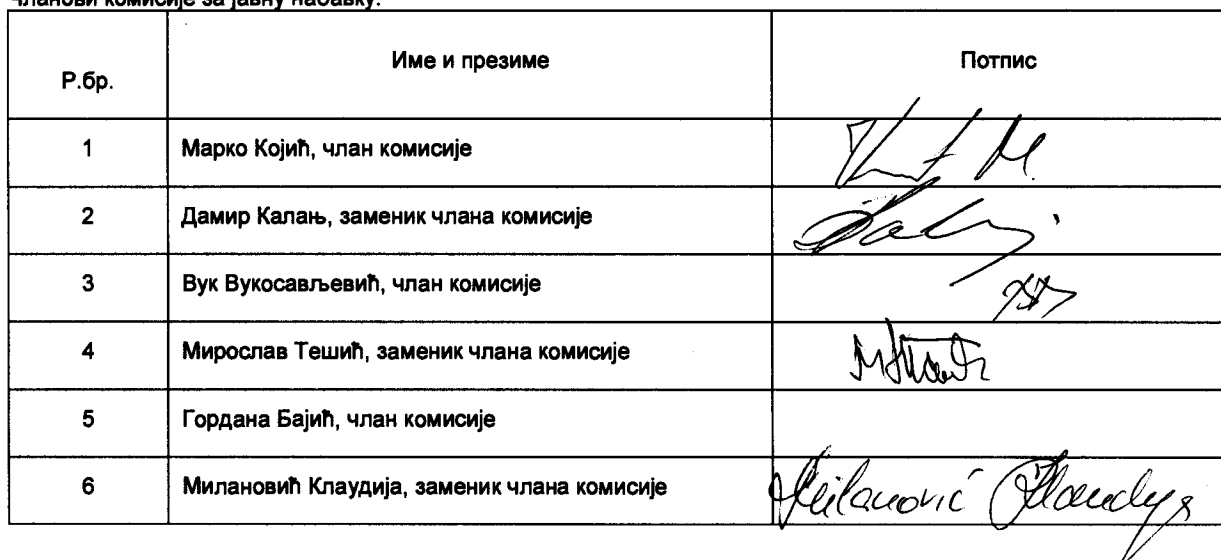 Чланови комисије за јавну набавку:
Р.бр. Име и презиме Потпис
1 Марко Којић, члан комисије
2 Дамир Калањ, заменик члана комисије
3 Вук Вукосављевић, члан комисије
4 Мирослав Тешић, заменик члана комисије
5 Гордана Бајић, члан комисије
6 Милановић Клаудија, заменик члана комисије Milanović